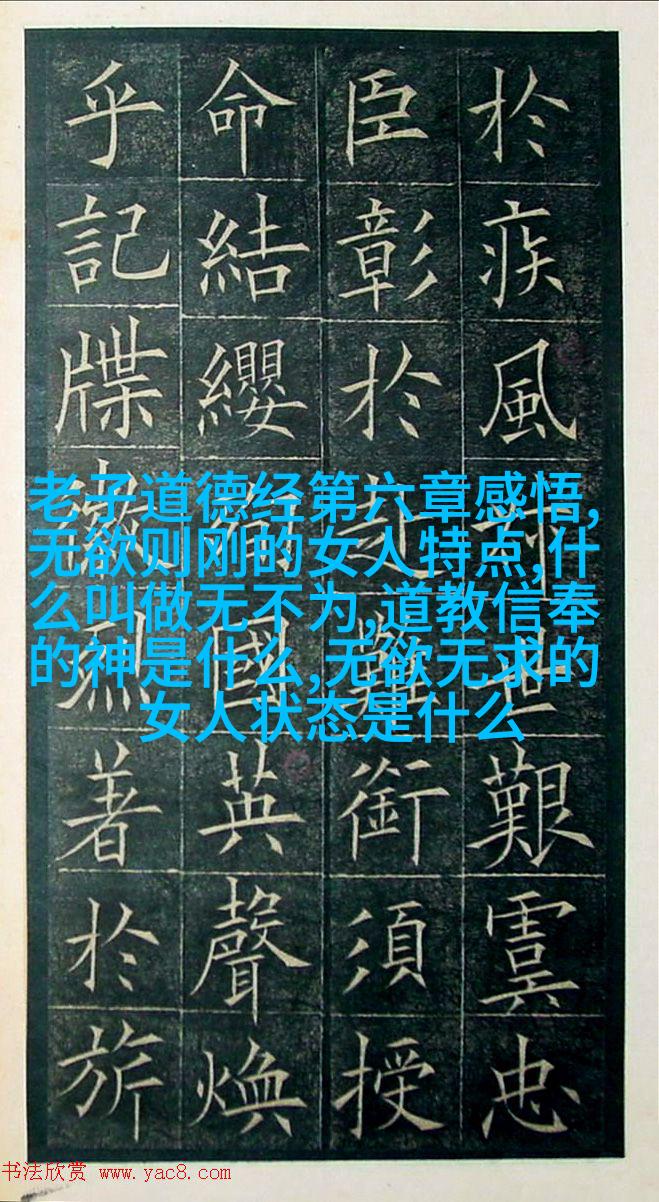 於疾風世艱虞忠
臣彰於難銜須授
命結纓國英聲煥
乎記牒烈著於旂
老子道德经第六章感悟,
无欲则刚的女人特点,什
么叫做无不为,道教信奉
的神是什么,无欲无求的
女人状态是什么
书法欣赏 www.yac8.com